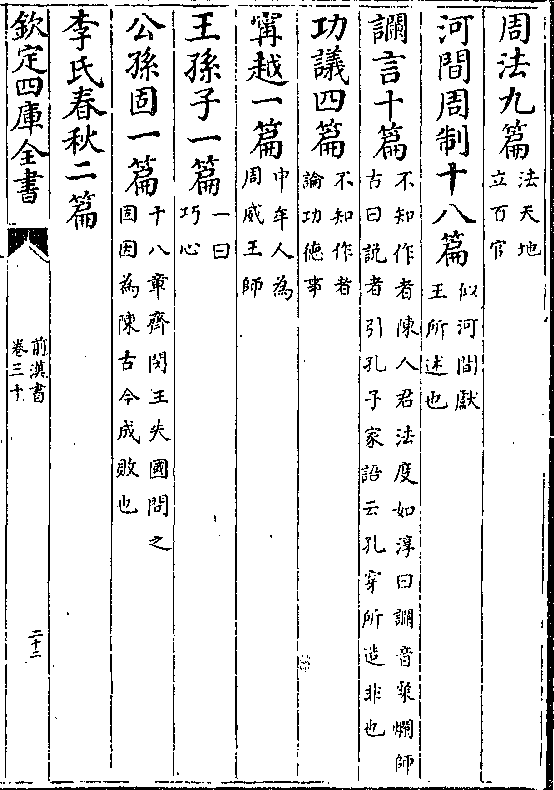 周法九篇法天地立百官
河間周制十八篇似河間獻王所述也
讕言十篇不知作者陳人君法度如淳曰讕音粲爛師古曰説者引孔子家語云孔穿所造非也
功議四篇不知作者論功德事
甯越一篇中牟人為周威王師
王孫子一篇一曰巧心
公孫固一篇十八章齊閔王失國問之固因為陳古今成敗也
李氏春秋二篇
欽定四庫全書 前漢書卷三十 二十二